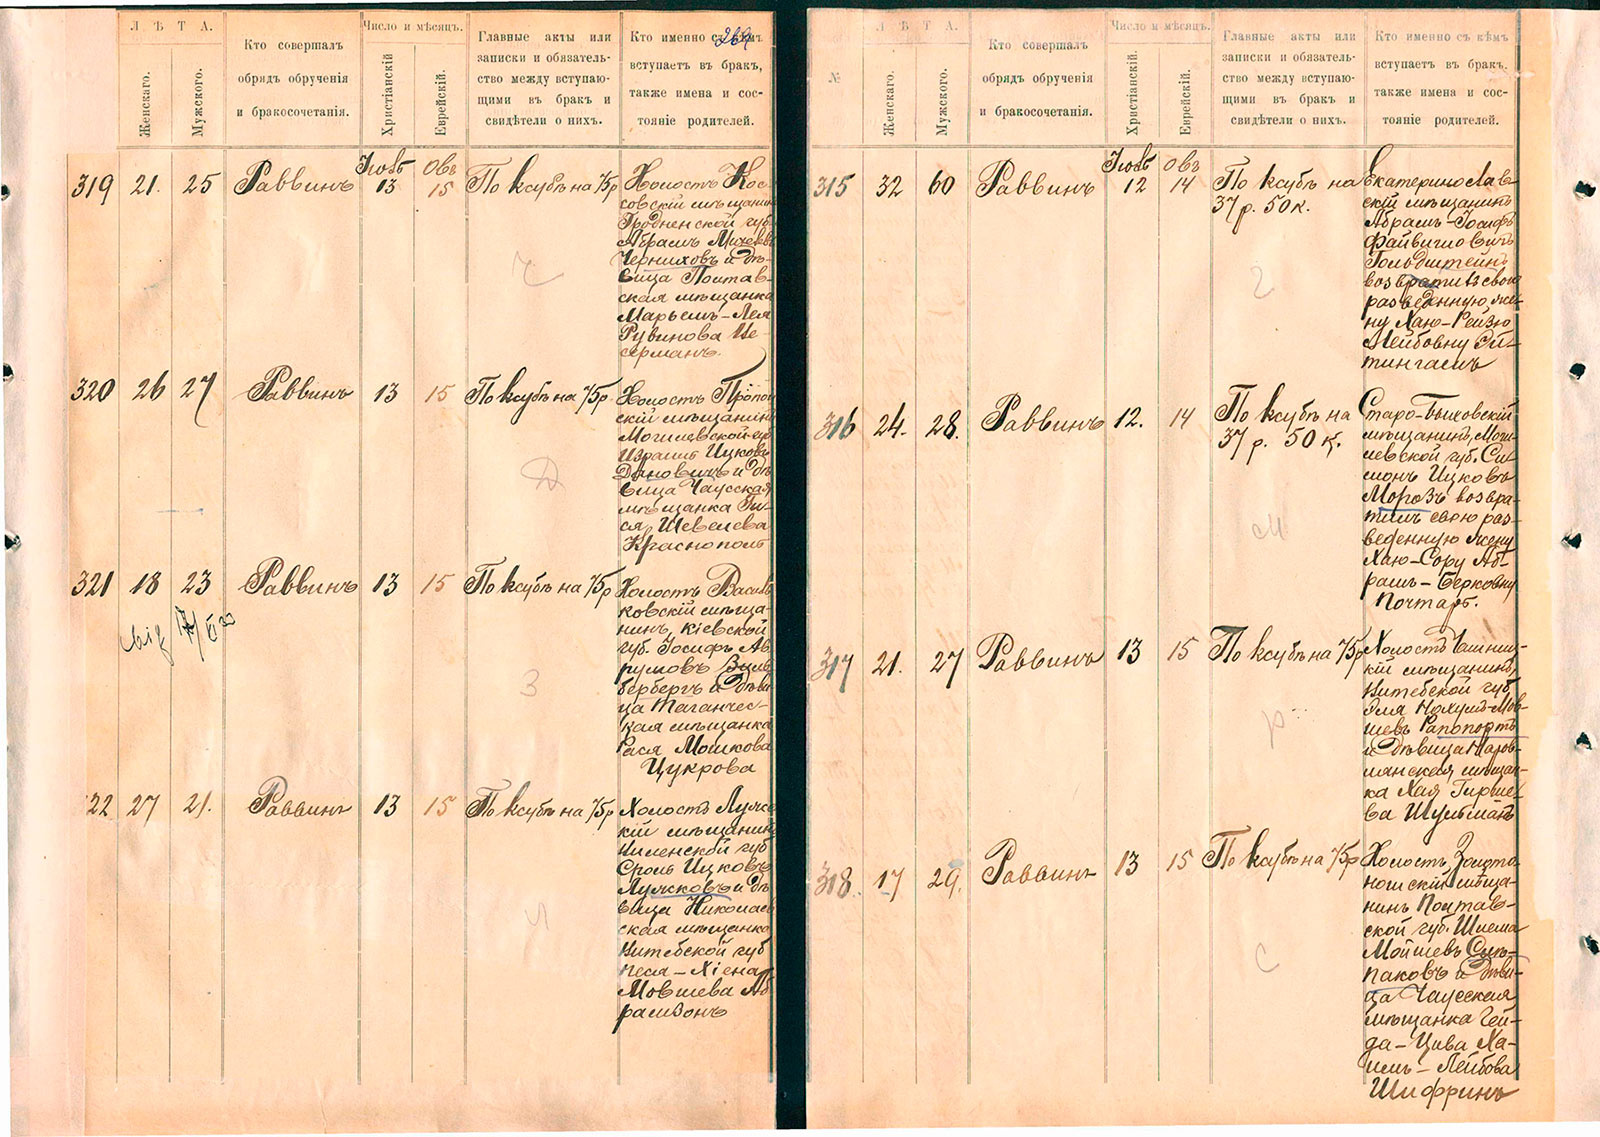 Л Ѣ Т А.
Женскаго.
Мужского.
Кто совершалъ
обрядъ обрученія
и бракосочетанія.
Число и мѣсяцъ.
Христіанскій
Еврейскій.
Главные акты или
записки и обязатель-
ство между вступаю-
щими въ бракъ и
свидѣтели о нихъ.
Кто именно съ кѣмъ
вступаетъ въ бракъ,
также имена и сос-
тояніе родителей.
319 21. 25 Раввинъ 13 15 По ксубѣ на 75р
Холостъ Кос-
совскій мѣщанинъ
Гродненской губ.
Абрамъ
Черниховъ и дѣ-
вица Полтав-
ская мѣщанка
Марьемъ-Лея
Рувинова Це-
серманъ.
320 26 27 Раввинъ 13 15 По ксубѣ на 75р.
Холостъ Пропой
скій мѣщанинъ
Могилевской губ
Израиль Ицковъ
и дѣ
вица Чаусская
мѣщанка Ги-
ся Шевелева
Краснополь
321 18 23 Раввинъ 13 15 По ксубѣ на 75р
Холостъ Василь
ковскій мѣща-
нинъ, Кіевской
губ. Іосифъ Ав
румовъ Зиль
бербергъ и дѣви
ца Таганчес-
кая мѣщанка
Рася Мошкова
Цукрова
22 27 21. Раввинъ 13 15 По ксубѣ на 75р
Холостъ
кій мѣщанинъ
Виленской губ
Сроль Ицковъ
и дѣ
вица Николаев
ская мѣщанка
Витебской губ
Песя-Хіена
Мовшева Аб
рамзонъ
№
Л Ѣ Т А.
Женскаго.
Мужского.
Кто совершалъ
обрядъ обрученія
и бракосочетанія.
Число и мѣсяцъ.
Христіанскій
Еврейскій.
Главные акты или
записки и обязатель-
ство между вступаю-
щими въ бракъ и
свидѣтели о нихъ.
Кто именно съ кѣмъ
вступаетъ въ бракъ,
также имена и сос-
тояніе родителей.
315 32 60 Раввинъ 12 14 По ксубѣ на
37 р. 50 к.
Екатеринослав-
скій мѣщанинъ
Абрамъ-Іосифъ
Файвишовичъ
Гольдштейнъ
возвратилъ свою
разведенную же-
ну Хаю-Рейзю
Лейбовну Эй-
тингамъ
316 24. 28. Раввинъ 12. 14 По ксубѣ на
37 р. 50 к.
Старо-Быховскій
мѣщанинъ, Моги-
левской губ. Си-
монъ Ицковъ
Морозъ возвра-
тилъ свою раз-
веденную жену
Хаю-Сору Аб-
рамъ-Берковну
Почтарь.
317 21. 27 Раввинъ 13 15 По ксубѣ на 75р
Холостъ Чашниц-
кій мѣщанинъ,
Витебской губ.
Эля Нохумъ-Мов-
шевъ Рапопортъ
и дѣвица Наров-
лянская мѣщан-
ка Хая Гирше-
ва Шульманъ
318 17 29. Раввинъ 13 15 По ксубѣ на 75р
Холостъ Золото-
ношскій мѣща-
нинъ Полтав-
ской губ. Шлема
Мойшевъ Слѣ-
паковъ и дѣви-
ца Чаусская
мѣщанка Гей-
да-Цива Ха-
имъ-Лейбова
Шифринъ